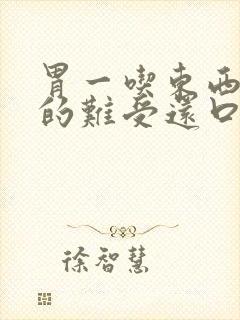 胃一喫東西
的難受還口
徐智慧